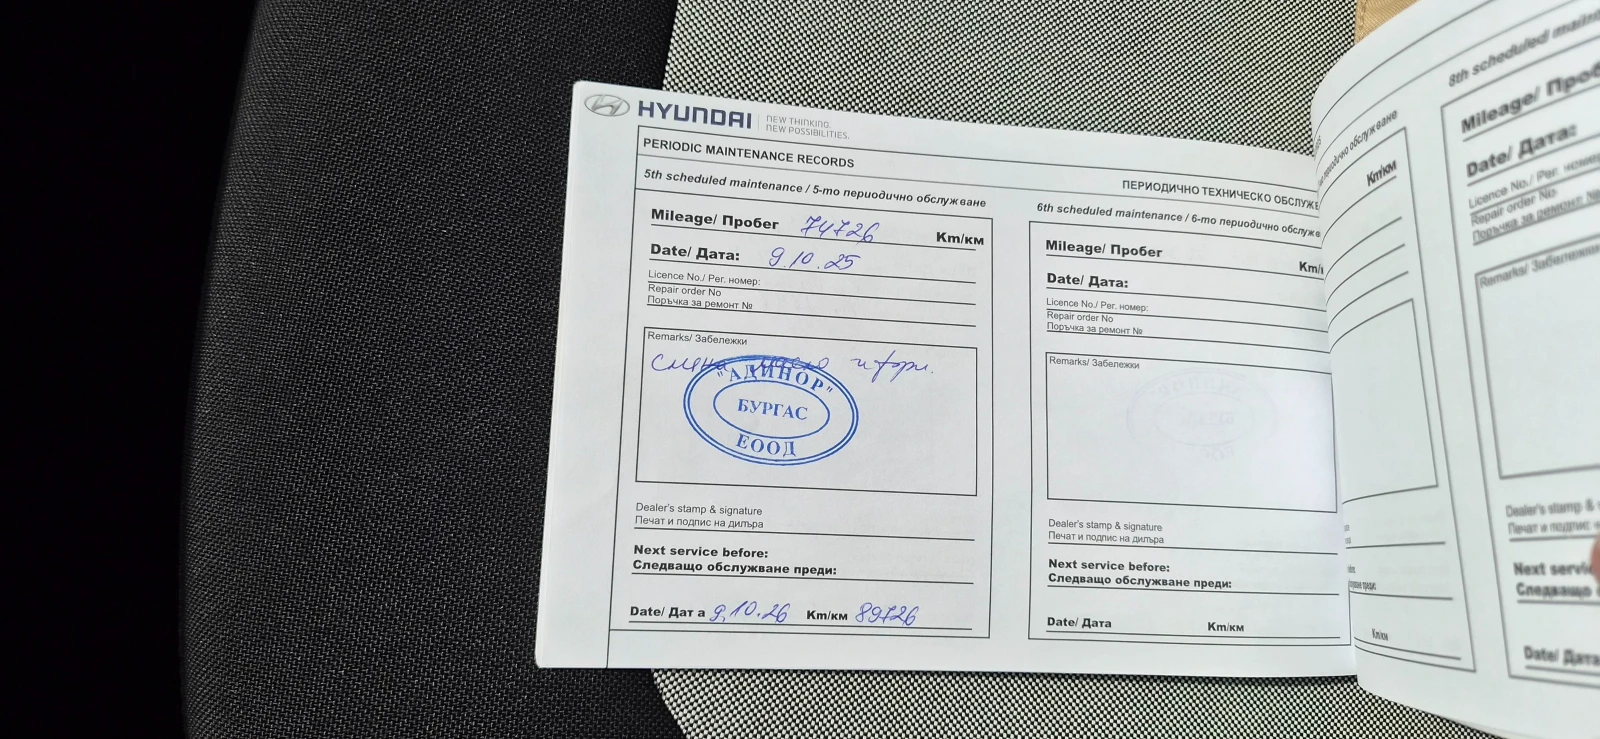 HYUNDAI
NEW THINKING.
NEW POSSIBILITIES.
PERIODIC MAINTENANCE RECORDS
ПЕРИОДИЧНО ТЕХНИЧЕСКО ОБСЛУЖЕ
5th scheduled maintenance / 5-то периодично обслужване
Mileage/ Пробег 74726 Km/км
Date/ Дата: 9.10.25
Licence No./ Рег. номер:
Repair order No
Поръчка за ремонт №
Remarks/ Забележки
смяна масло
"АДИНОР"
БУРГАС
ЕООД
Dealer's stamp & signature
Печат и подпис на дилъра
Next service before:
Следващо обслужване преди:
Date/ Дат а 9.10.26 Km/км 89726
6th scheduled maintenance / 6-то периодично обслужв
Mileage/ Пробег Km/
Date/ Дата:
Licence No./ Рег. номер:
Repair order No
Поръчка за ремонт №
Remarks/ Забележки
Dealer's stamp & signature
Печат и подпис на дилъра
Next service before:
Следващо обслужване преди:
Date/ Дата Km/км
периодично обслужване
Km/км
Km/км
8th scheduled
Mileage/
Date/ Дата:
Licence No./ Рег. номер
Repair order No
Поръчка за ремонт №
Remarks/ Забележки
Dealer's stamp &
Печат и подпис
Next
Date/ Дата